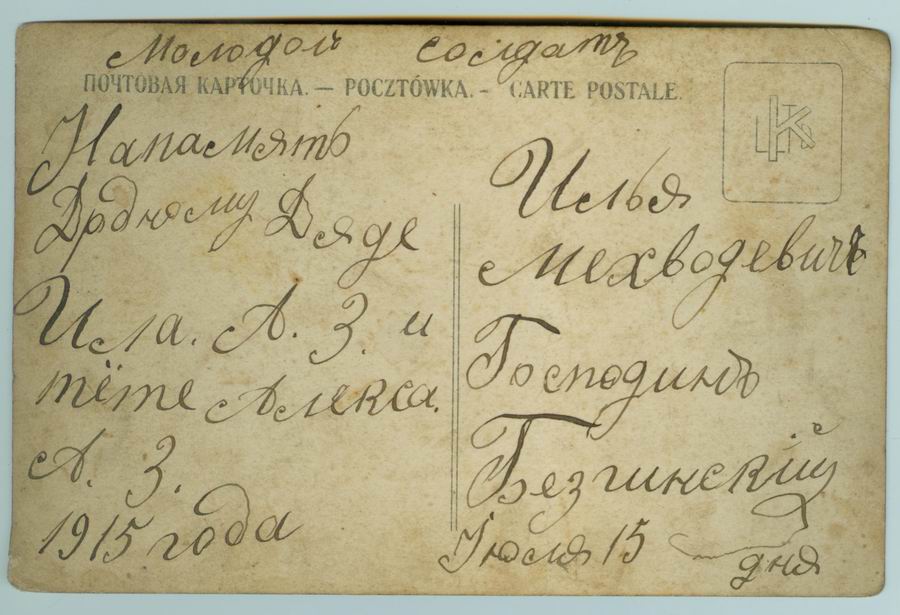 Молодой солдатъ
ПОЧТОВАЯ КАРТОЧКА. — POCZTÓWKA. - CARTE POSTALE.
Напамять
Дродному Дяде
Ила. А. З. и
тёте Алекса.
А. З.
1915 года
Илья
Мехводевичъ
Господинъ
Безгинскій
Іюля 15
дня